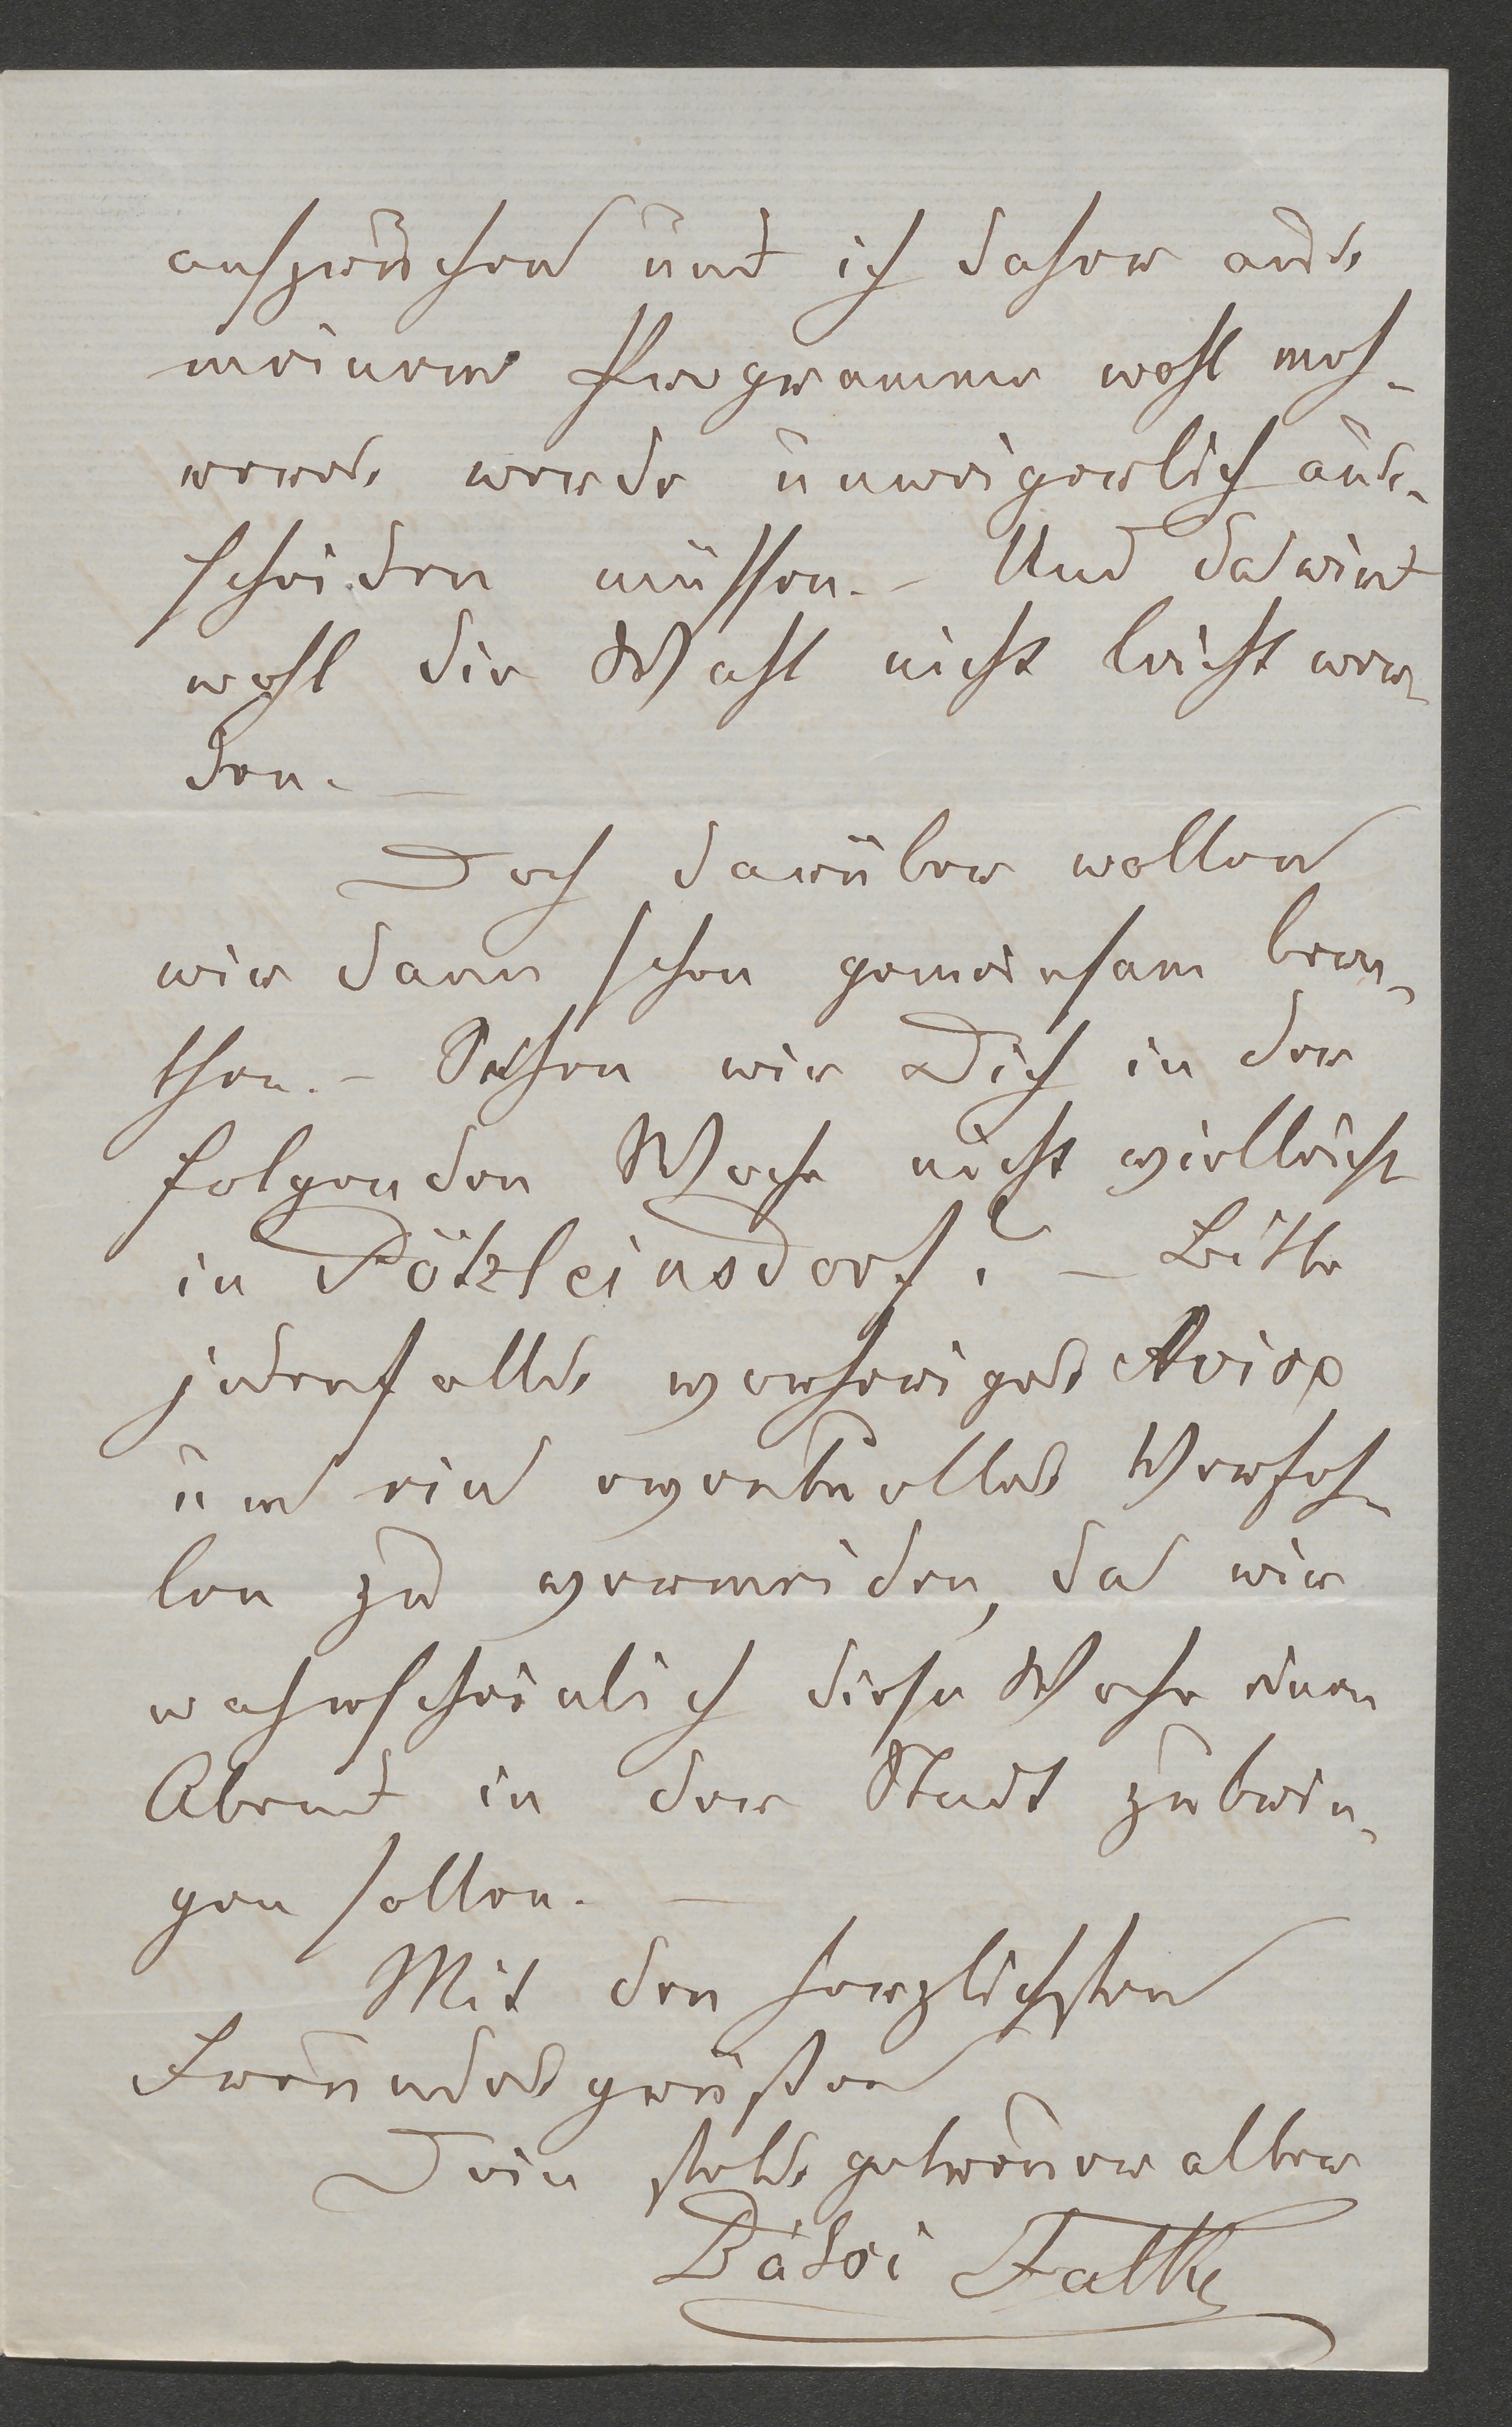 aufzuweisen und ich daher aus
meinem Programme wohl meh-
reres werde unweigerlich aus-
scheiden müssen. – Und da wird
wohl die Wahl nicht leicht wer-
den. –
Doch darüber wollen
wir dann schon gemeinsam bera-
then. – Sehen wir Dich in der
folgenden Woche nicht vielleicht
in Pötzleinsdorf? – Bitte
jedenfalls vorheriges Aviso
um ein eventuelles Verfeh-
len zu vermeiden, da wir
wahrscheinlich diese Woche einen
Abend in der Stadt zubrin-
gen sollen. –
Mit den herzlichsten
Freundesgrüßen
Dein stets getreuer alter
Falke